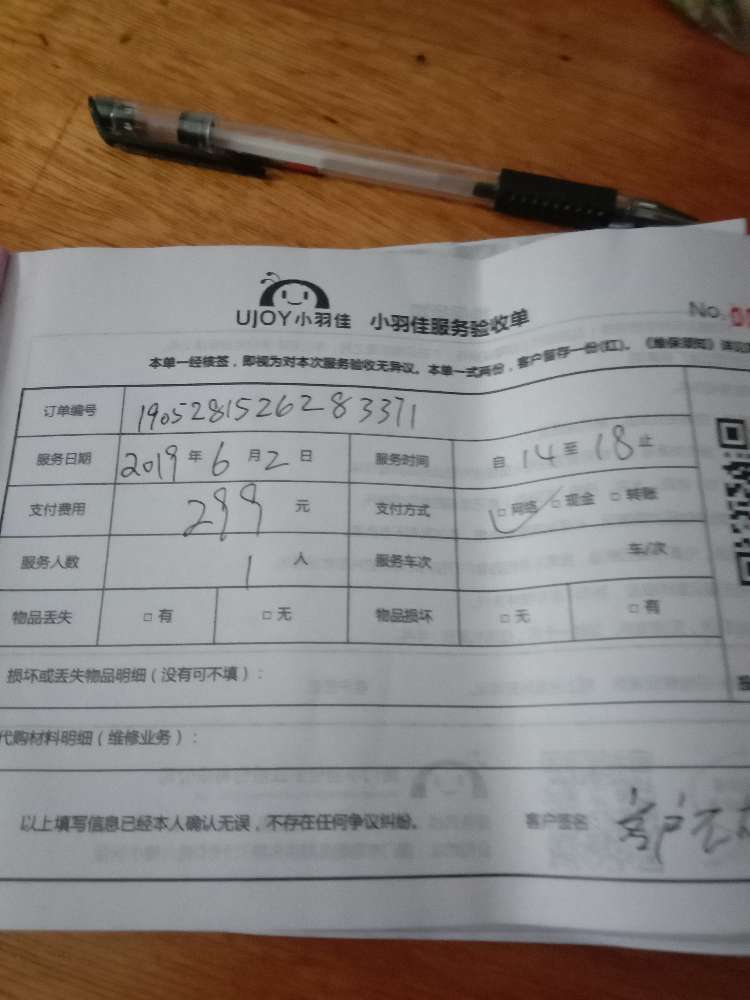 UJOY小羽佳 小羽佳服务验收单 No.
本单一经核签，即视为对本次服务验收无异议。本单一式两份，客户留存一份(红)。《维保须知》详见
订单编号 190528152628 3371
服务日期 2019年6月2日 服务时间 自14至18止
支付费用 299元 支付方式 □网络 □现金 □转账
服务人数 1人 服务车次 车/次
物品丢失 □有 □无 物品损坏 □无 □有
损坏或丢失物品明细（没有可不填）：
代购材料明细（维修业务）：
以上填写信息已经本人确认无误，不存在任何争议纠纷。 客户签名：